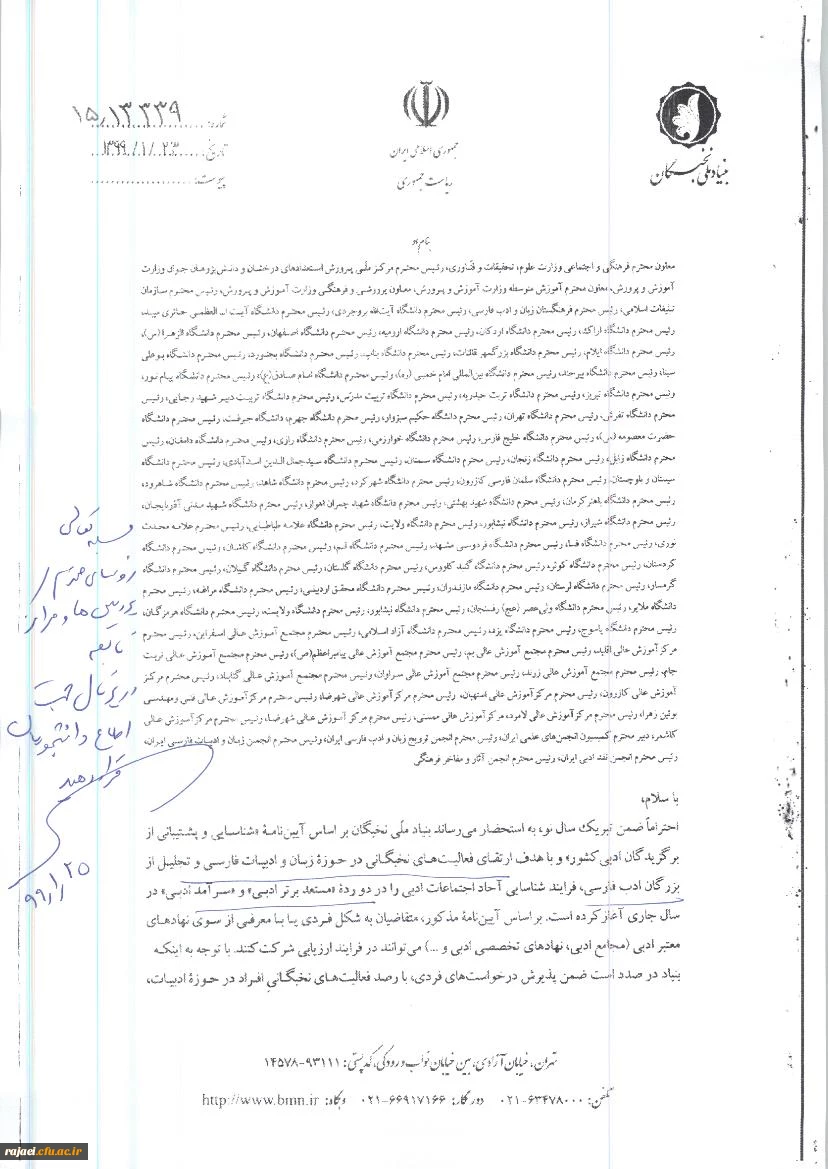 بنیاد ملی نخبگان
جمهوری اسلامی ایران
ریاست جمهوری
شماره: ۱۵/۱۳۳۳۹
تاریخ: ۱۳۹۹/۱/۲۳
پیوست:
بنام او
معاون محترم فرهنگی و اجتماعی وزارت علوم، تحقیقات و فنّاوری، رئیس محترم مرکز ملّی پرورش استعدادهای درخشان و دانش‌پژوهان جوان وزارت
آموزش و پرورش، معاون محترم آموزش متوسطه وزارت آموزش و پرورش، معاون پرورشی و فرهنگی وزارت آموزش و پرورش، رئیس محترم سازمان
تبلیغات اسلامی، رئیس محترم فرهنگستان زبان و ادب فارسی، رئیس محترم دانشگاه آیت‌الله بروجردی، رئیس محترم دانشگاه آیت اله العظمی حائری میبد،
رئیس محترم دانشگاه اراک، رئیس محترم دانشگاه اردکان، رئیس محترم دانشگاه ارومیه، رئیس محترم دانشگاه اصفهان، رئیس محترم دانشگاه الزهرا (س)،
رئیس محترم دانشگاه ایلام، رئیس محترم دانشگاه بزرگمهر قائنات، رئیس محترم دانشگاه بناب، رئیس محترم دانشگاه بجنورد، رئیس محترم دانشگاه بوعلی
سینا، رئیس محترم دانشگاه بیرجند، رئیس محترم دانشگاه بین‌المللی امام خمینی (ره)، رئیس محترم دانشگاه امام صادق(ع)، رئیس محترم دانشگاه پیام نور،
رئیس محترم دانشگاه تبریز، رئیس محترم دانشگاه تربت حیدریه، رئیس محترم دانشگاه تربیت مدرّس، رئیس محترم دانشگاه تربیت دبیر شهید رجایی، رئیس
محترم دانشگاه تفرش، رئیس محترم دانشگاه تهران، رئیس محترم دانشگاه حکیم سبزوار، رئیس محترم دانشگاه جهرم، دانشگاه جیرفت، رئیس محترم دانشگاه
حضرت معصومه (س)، رئیس محترم دانشگاه خلیج فارس، رئیس محترم دانشگاه خوارزمی، رئیس محترم دانشگاه رازی، رئیس محترم دانشگاه دامغان، رئیس
محترم دانشگاه زابل، رئیس محترم دانشگاه زنجان، رئیس محترم دانشگاه سمنان، رئیس محترم دانشگاه سیدجمال الدین اسدآبادی، رئیس محترم دانشگاه
سیستان و بلوچستان، رئیس محترم دانشگاه سلمان فارسی کازرون، رئیس محترم دانشگاه شهرکرد، رئیس محترم دانشگاه شاهد، رئیس محترم دانشگاه شاهرود،
رئیس محترم دانشگاه باهنر کرمان، رئیس محترم دانشگاه شهید بهشتی، رئیس محترم دانشگاه شهید چمران اهواز، رئیس محترم دانشگاه شهید مدنی آذربایجان،
رئیس محترم دانشگاه شیراز، رئیس محترم دانشگاه نیشابور، رئیس محترم دانشگاه ولایت، رئیس محترم دانشگاه علامه طباطبایی، رئیس محترم علامه محدث
نوری، رئیس محترم دانشگاه فسا، رئیس محترم دانشگاه فردوسی مشهد، رئیس محترم دانشگاه قم، رئیس محترم دانشگاه کاشان، رئیس محترم دانشگاه
کردستان، رئیس محترم دانشگاه کوثر، رئیس محترم دانشگاه گنبد کاووس، رئیس محترم دانشگاه گلستان، رئیس محترم دانشگاه گیلان، رئیس محترم دانشگاه
گرمسار، رئیس محترم دانشگاه لرستان، رئیس محترم دانشگاه مازندران، رئیس محترم دانشگاه محقق اردبیلی، رئیس محترم دانشگاه مراغه، رئیس محترم
دانشگاه ملایر، رئیس محترم دانشگاه ولی‌عصر (عج) رفسنجان، رئیس محترم دانشگاه نیشابور، رئیس محترم دانشگاه ولایت، رئیس محترم دانشگاه هرمزگان،
رئیس محترم دانشگاه یاسوج، رئیس محترم دانشگاه یزد، رئیس محترم دانشگاه آزاد اسلامی، رئیس محترم مجتمع آموزش عالی اسفراین، رئیس محترم
مرکز آموزش عالی اقلید، رئیس محترم مجتمع آموزش عالی بم، رئیس محترم مجتمع آموزش عالی پیامبراعظم(ص)، رئیس محترم مجتمع آموزش عالی تربت
جام، رئیس محترم مجتمع آموزش عالی زرند، رئیس محترم مجتمع آموزش عالی سراوان، رئیس محترم مجتمع آموزش عالی گناباد، رئیس محترم مرکز
آموزش عالی کازرون، رئیس محترم مرکز آموزش عالی استهبان، رئیس محترم مرکز آموزش عالی شهرضا، رئیس محترم مرکز آموزش عالی فنی و مهندسی
بوئین زهرا، رئیس محترم مرکز آموزش عالی لامرد، مرکز آموزش عالی ممسنی، رئیس محترم مرکز آموزش عالی شهرضا، رئیس محترم مرکز آموزش عالی
کاشمر، دبیر محترم کمیسیون انجمن‌های علمی ایران، رئیس محترم انجمن ترویج زبان و ادب فارسی ایران، رئیس محترم انجمن زبان و ادبیات فارسی ایران،
رئیس محترم انجمن نقد ادبی ایران، رئیس محترم انجمن آثار و مفاخر فرهنگی
با سلام،
احتراماً ضمن تبریک سال نو، به استحضار می‌رساند بنیاد ملّی نخبگان بر اساس آیین‌نامهٔ «شناسایی و پشتیبانی از
برگزیدگان ادبی کشور» و با هدف ارتقای فعالیت‌های نخبگانی در حوزهٔ زبان و ادبیات فارسی و تجلیل از
بزرگان ادب فارسی، فرایند شناسایی آحاد اجتماعات ادبی را در دو ردهٔ «مستعد برتر ادبی» و «سرآمد ادبی» در
سال جاری آغاز کرده است. بر اساس آیین‌نامهٔ مذکور، متقاضیان به شکل فردی یا با معرفی از سوی نهادهای
معتبر ادبی (مجامع ادبی، نهادهای تخصصی ادبی و ...) می‌توانند در فرایند ارزیابی شرکت کنند. با توجه به اینکه
بنیاد در صدد است ضمن پذیرش درخواست‌های فردی، با رصد فعالیت‌های نخبگانی افراد در حوزهٔ ادبیات،
بسمه تعالی
روسای محترم
پردیس ها و مراکز
تابعه
در پرتال جهت
اطلاع دانشجویان
قرار دهید
۹۹/۱/۲۵
تهران، خیابان آزادی، بین خیابان نواب و رودکی، کد پستی: ۹۳۱۱۱-۱۴۵۷۸
تلفن: ۶۳۴۷۸۰۰۰-۰۲۱ دورنگار: ۶۶۹۱۷۱۶۶-۰۲۱ وبگاه: http://www.bmn.ir
rajaei.cfu.ac.ir